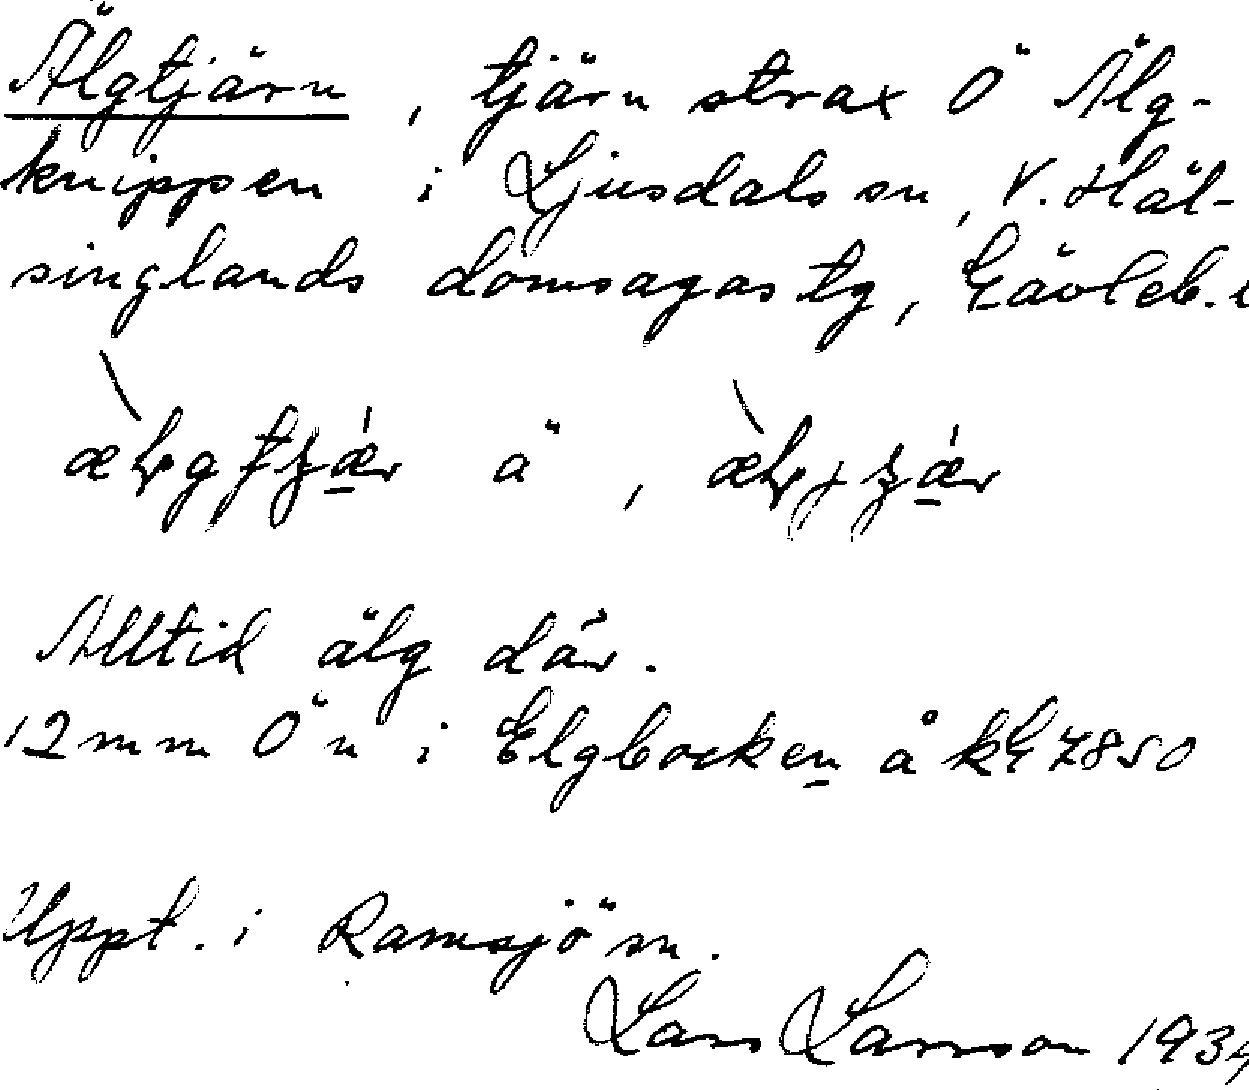 Älgtjärn, tjärn strax Ö Älg-
knippen i Ljusdals sn, V. Häl-
singlands domsagas tg, Gävleb. l
Alltid älg där.
12 mm Ö n i Elgbocken å kbl 7850
Uppt. i Ramsjö sn.
Lars Larsson 1934